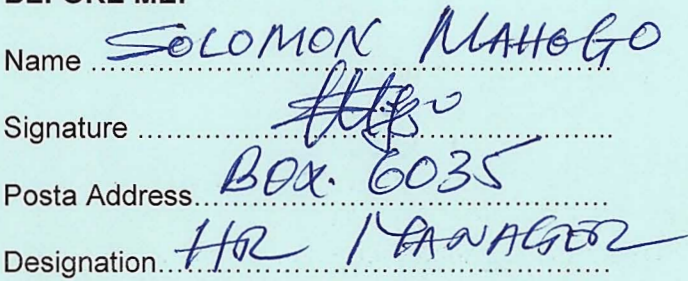 BEFORE ME:
Name SOLOMON MAHOGO
Signature
Posta Address BOX. 6035
Designation HR MANAGER